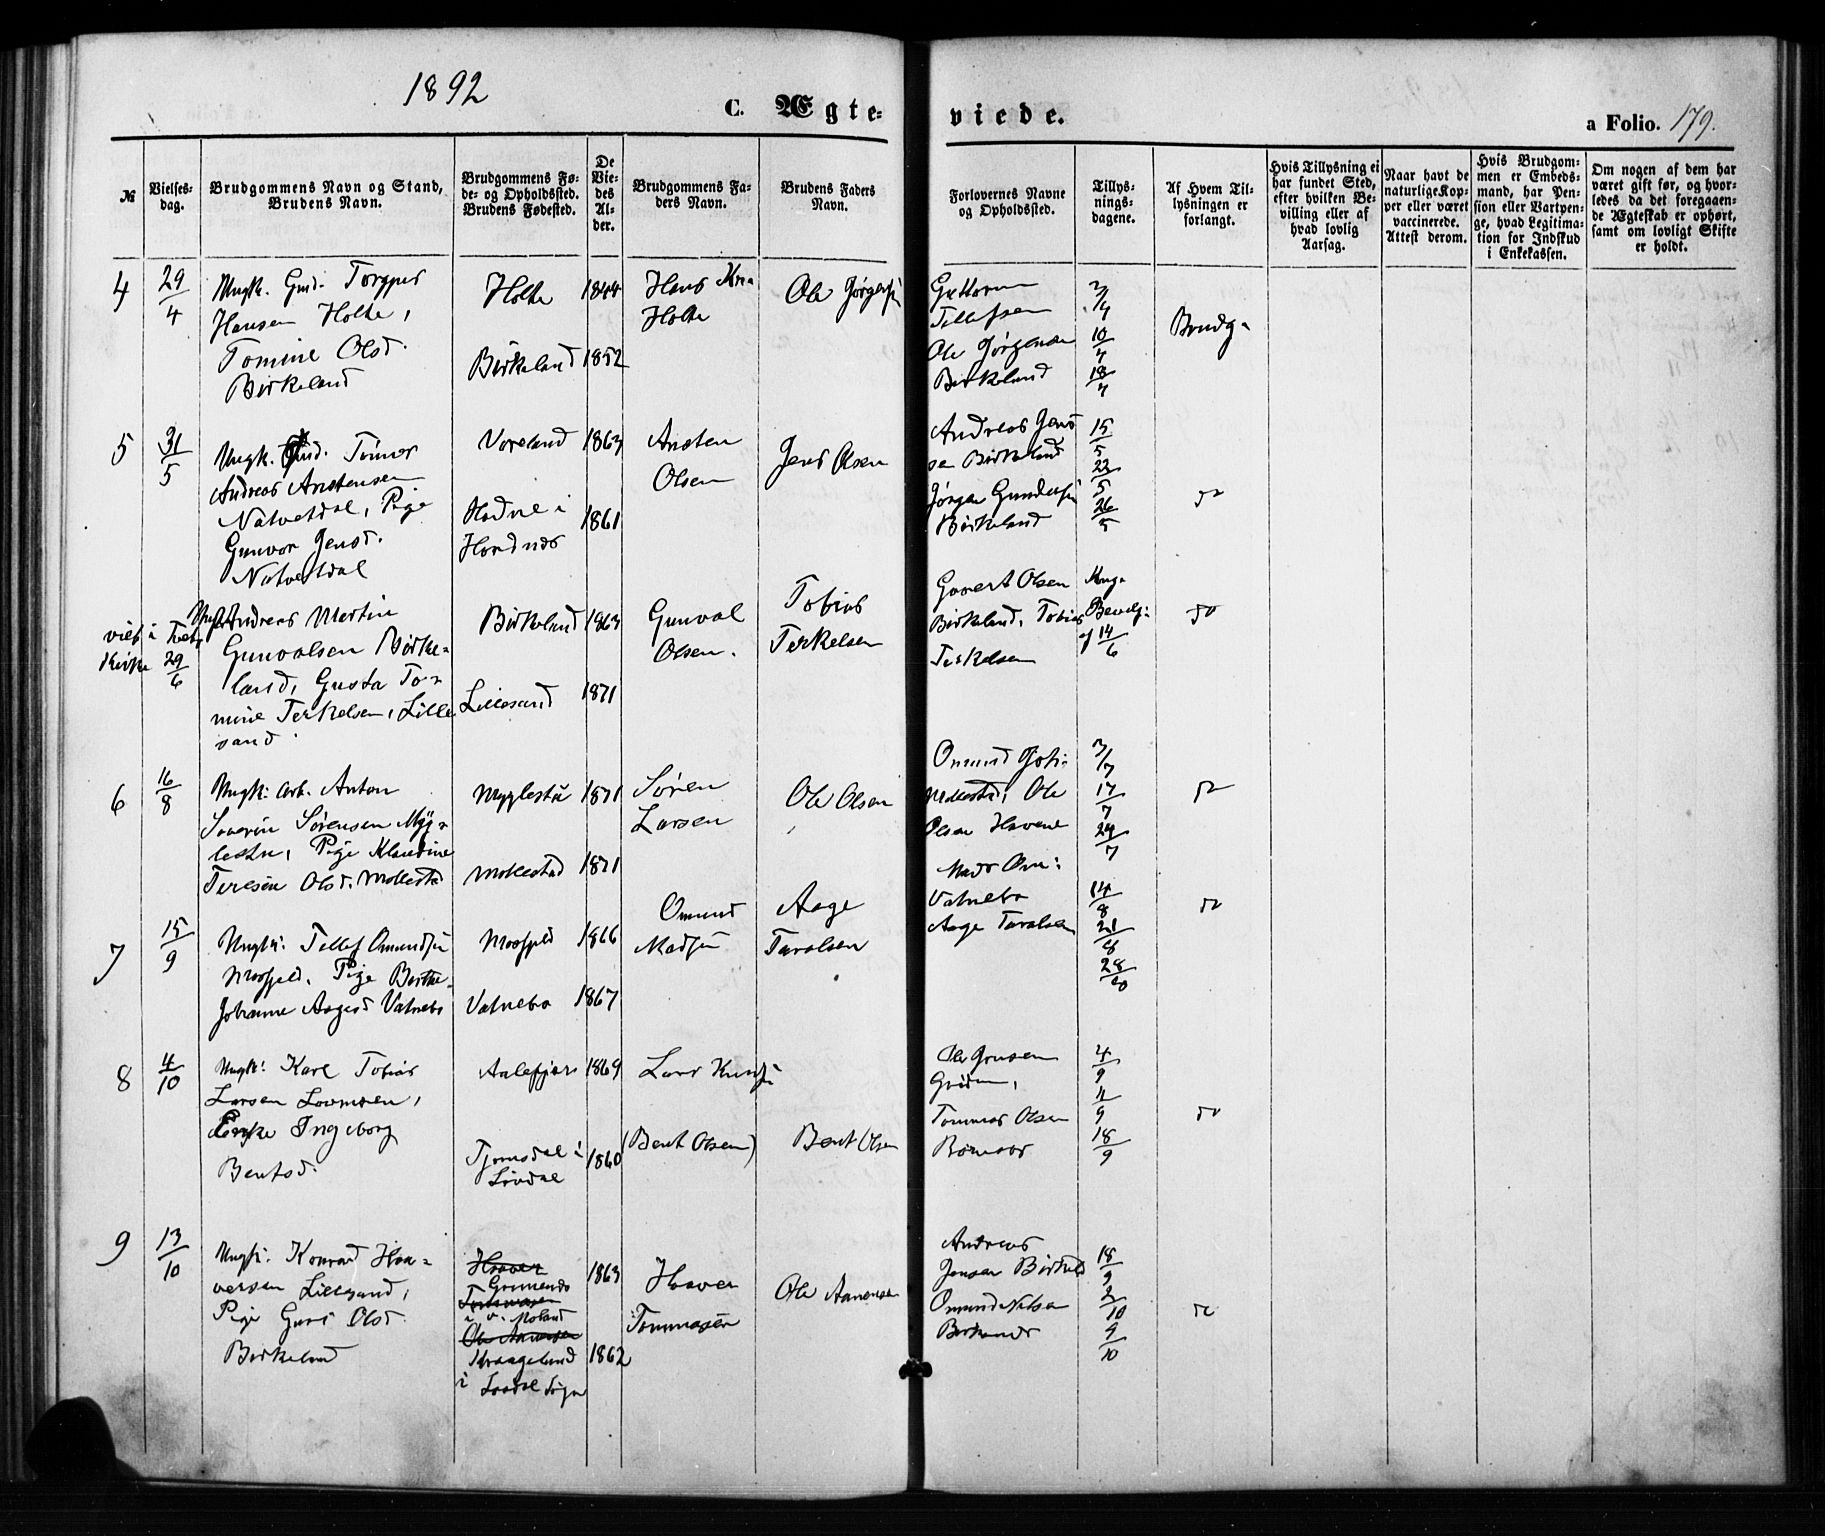 1892
C. Ægte-
viede.
a Folio. 179.
№
Vielses-
dag.
Brudgommens Navn og Stand,
Brudens Navn.
Brudgommens Fø-
de- og Opholdssted.
Brudens Fødested.
De
Vie-
des
Al-
der.
Brudgommens Fa-
ders Navn.
Brudens Faders
Navn.
Forlovernes Navne
og Opholdssted.
Tillys-
nings-
dagene.
Af Hvem Til-
lysningen er
forlangt.
Hvis Tillysning ei
har fundet Sted,
efter hvilken Be-
villing eller af
hvad lovlig
Aarsag.
Naar havt de
naturlige Kop-
per eller været
vaccinerede.
Attest derom.
Hvis Brudgom-
men er Embeds-
mand, har Pen-
sion eller Vartpen-
ge, hvad Legitima-
tion for Indskud
i Enkekassen.
Om nogen af dem har
været gift før, og hvor-
ledes da det foregaaen-
de Ægteskab er ophørt,
samt om lovligt Skifte
er holdt.
4
29/4
Ungk. Gmd. Torgus
Hansen Holte,
Tomine Olsd.
Birkeland
Holte
Birkeland
1844
1852
Hans
Holte
Ole Jørgens
Guttorm
Tellefsen
Ole Jørgensen
Birkeland
3/4
10/4
18/4
Brudg.
5
31/5
Ungk. Gmd. Tønnes
Andreas Anstensen
Natvetdal, Pige
Gunvor Jensd.
Natvetdal
Voreland
i
1863
1861
Ansten
Olsen
Jens Olsen
Andreas Jens
sen Birkeland
Jørgen Gundersen
Birkeland
15/5
22/5
26/5
do
viet i Tveit
Kirke 29/6
Ungk. Andreas Martin
Gunvalsen Birke-
land, Gusta To-
mine Terkelsen, Lille
sand
Birkeland
Lillesand
1863
1871
Gunval
Olsen.
Tobias
Terkelsen
Govert Olsen
Birkeland, Tobias
Terkelsen
Kng.
Bevilg:
af 14/6
do
6
16/8
Ungk: Arb. Anton
Severin Sørensen Myg-
lestu, Pige Klaudine
Teresie Olsd. Mollestad
Myglestu
Mollestad
1871
1871
Søren
Larsen
Ole Olsen
Omund
Mollestad, Ole
Olsen
3/7
17/7
24/7
do
7
15/9
Ungk: Tellef Omundsen
Mosfjeld, Pige Berthe
Johanne Aagesd Vatnebo
Mosfjeld
Vatnebo
1866
1867
Omund
Madsen
Aage
Taralsen
Mads Om:
Vatnebo
Aage Taralsen
14/8
21/8
28/10
do
8
4/10
Ungk: Karl Tobias
Larsen
Enke Ingeborg
Bentsd.
Aalefjær
Tjomsdal i
1869
1860
Lars
(Bent Olsen)
Bent Olsen
Ole
Tommas Olsen
4/9
11/9
18/9
do
9
13/10
Ungk: Konrad Haa-
versen Lillesand,
Pige Guri Olsd.
Birkeland
Haaver
i V. Moland
Ole Aanensen
Kraageland
i
1863
1862
Haaver
Tommasen
Ole Aanensen
Andreas
Jensen Birkeld
Omund Nelsen
Birkenes
18/9
2/10
9/10
do